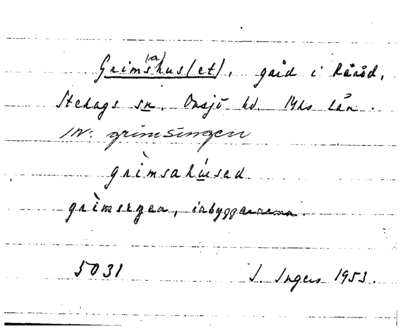 Grims(a)hus(et), gård i Råröd,
Stehags sn. Onsjö hd. Mhs län.
IN: grimsingen
grìmsahúsad
grìmsengen, inbyggarna.
5031 I. Ingers 1953.